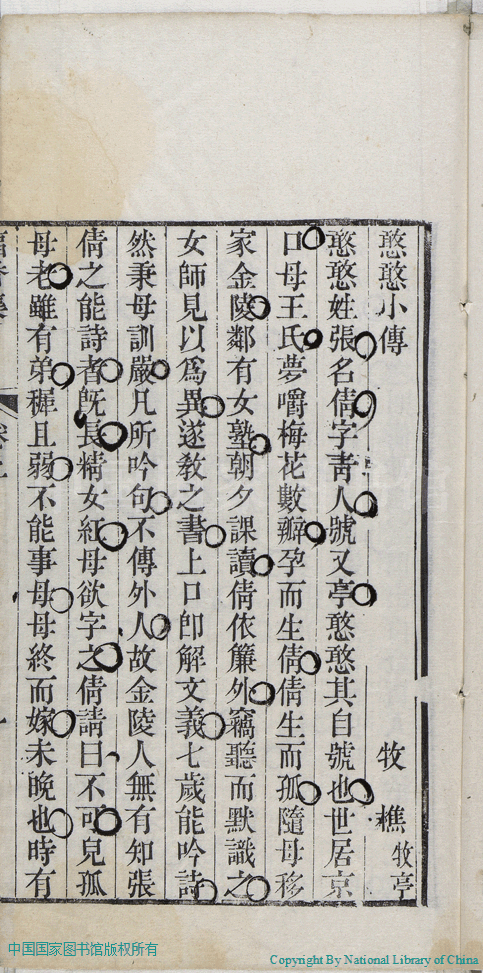 憨憨小傳
牧樵牧亭
憨憨姓張名倩字靑人號又亭憨憨其自號也世居京
口母王氏夢嚼梅花數瓣孕而生倩倩生而孤隨母移
家金陵鄰有女塾朝夕課讀倩依簾外竊聽而默識之
女師見以爲異遂敎之書上口卽解文義七歲能吟詩
然秉母訓嚴凡所吟句不傳外人故金陵人無有知張
倩之能詩者旣長精女紅母欲字之倩請曰不可兒孤
母老雖有弟穉且弱不能事母母終而嫁未晚也時有
中国国家图书馆版权所有
Copyright By National Library of China